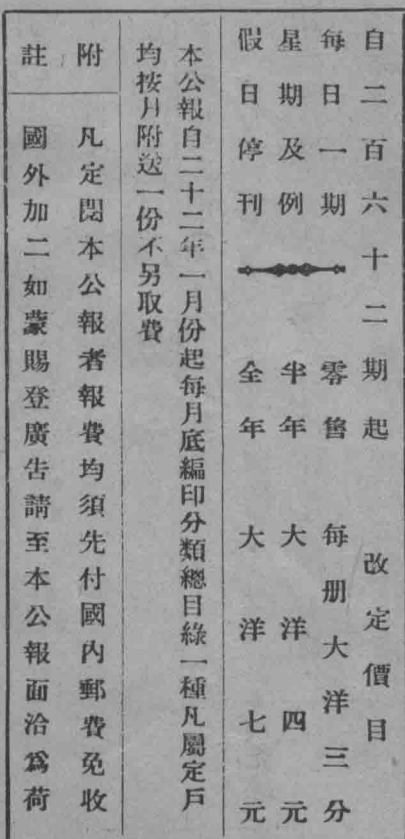 自二百六十二期起　改定價目
每日一期　零售　每册大洋三分
星期及例　半年　大洋四元
假日停刊　全年　大洋七元
本公報自二十二年一月份起每月底編印分類總目錄一種凡屬定戶
均按月附送一份不另取費
附　凡定閱本公報者報費均須先付國內郵費免收
註　國外加二如蒙賜登廣告請至本公報面洽爲荷